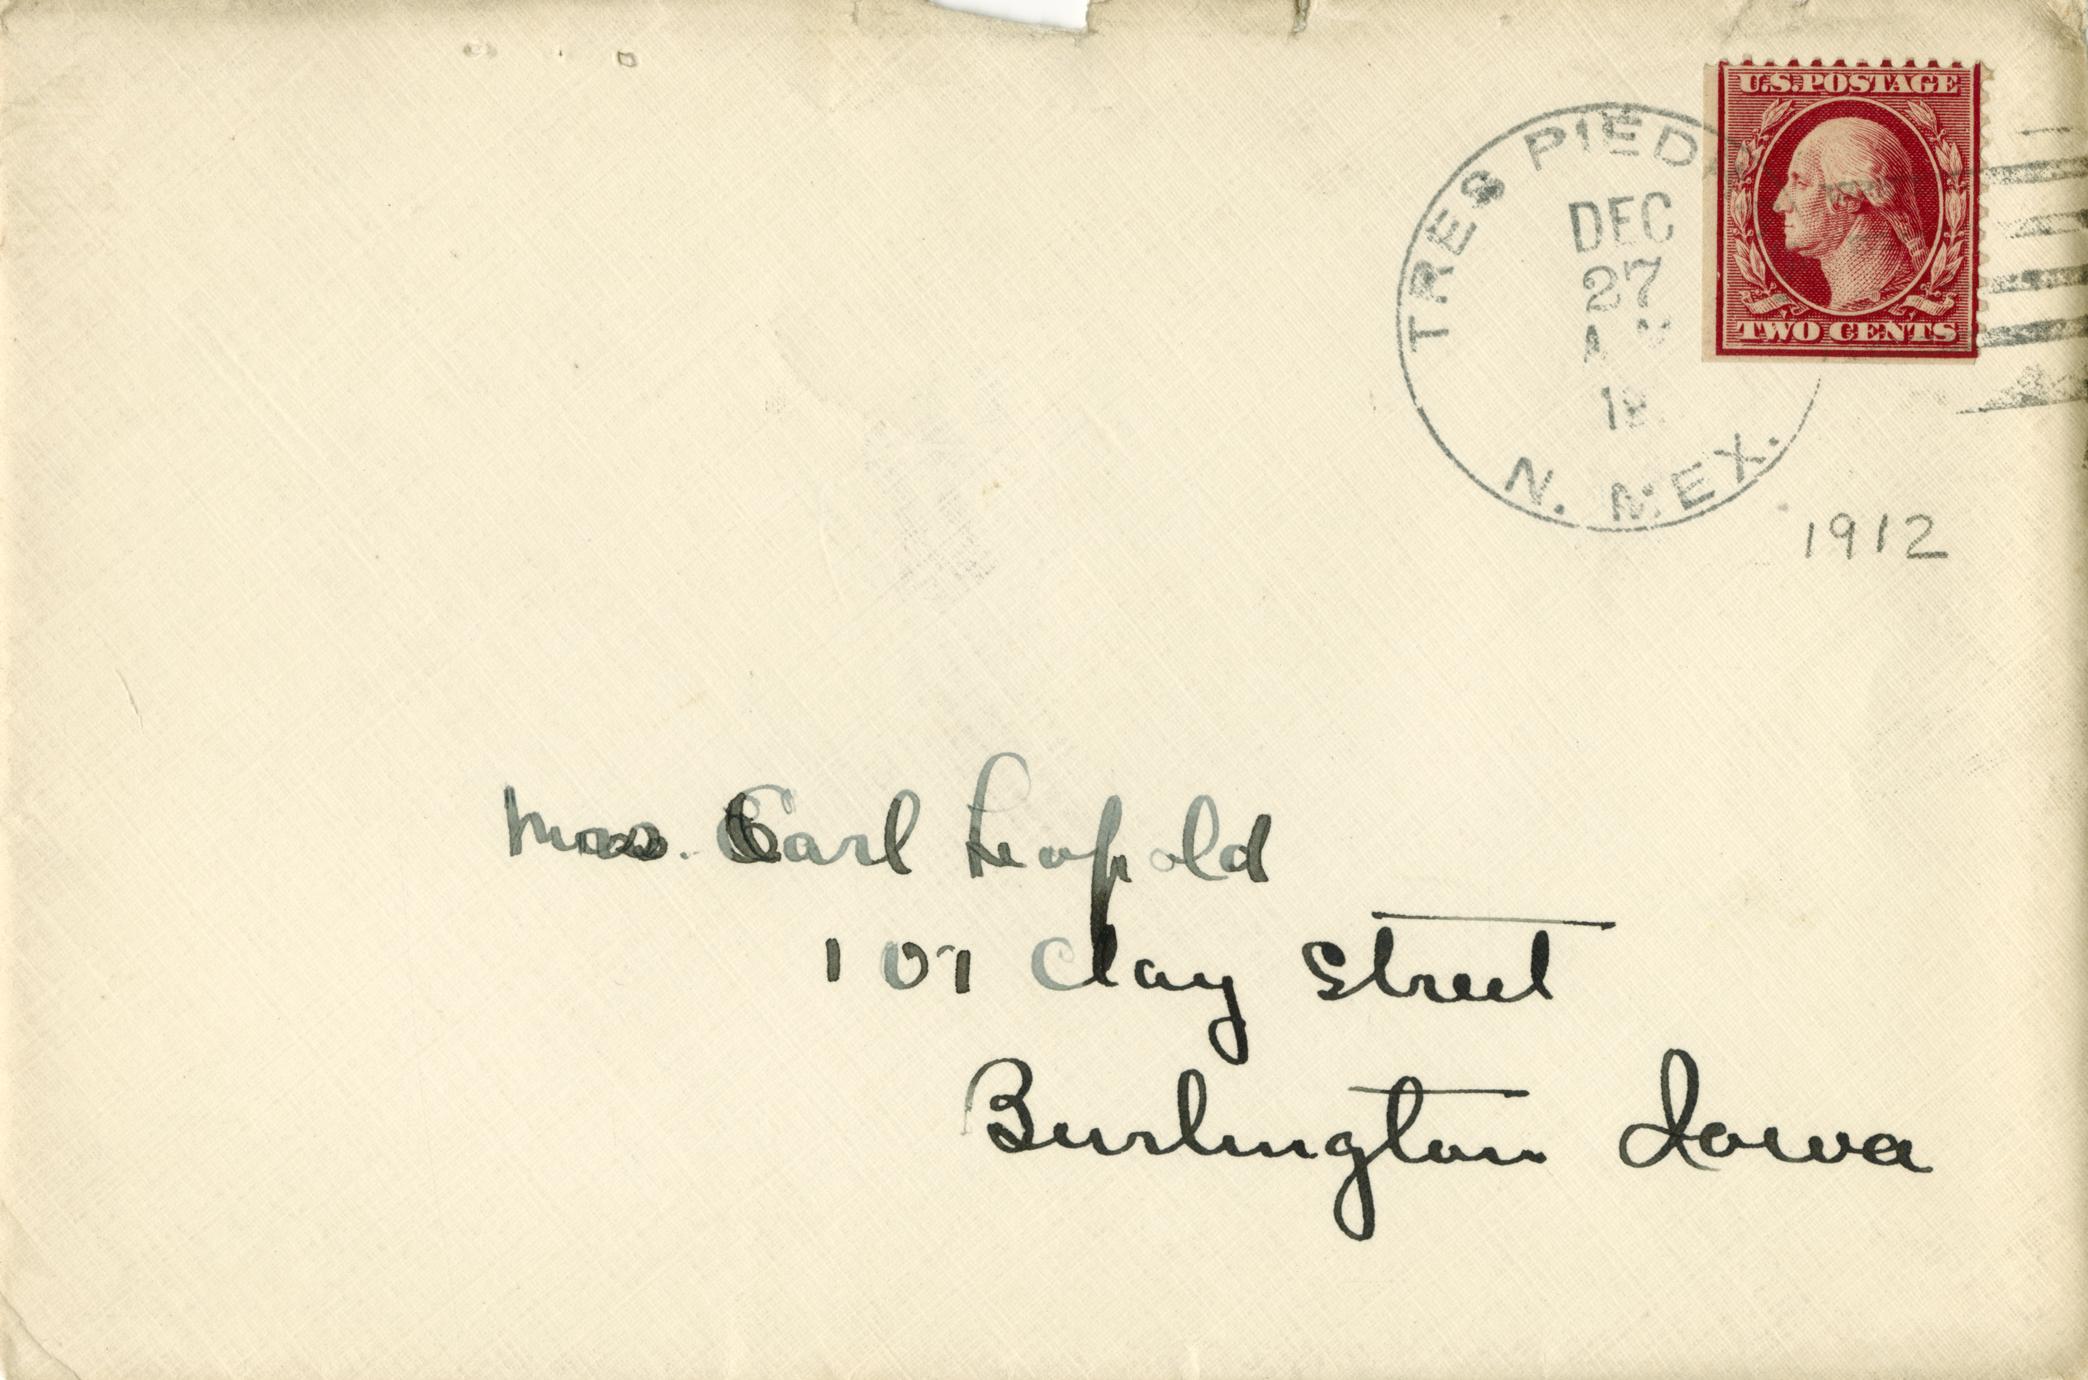 U.S. POSTAGE
TWO CENTS
TRES PIED
DEC
27
N. MEX.
1912
Mrs. Carl Leopold
101 Clay Street
Burlington Iowa